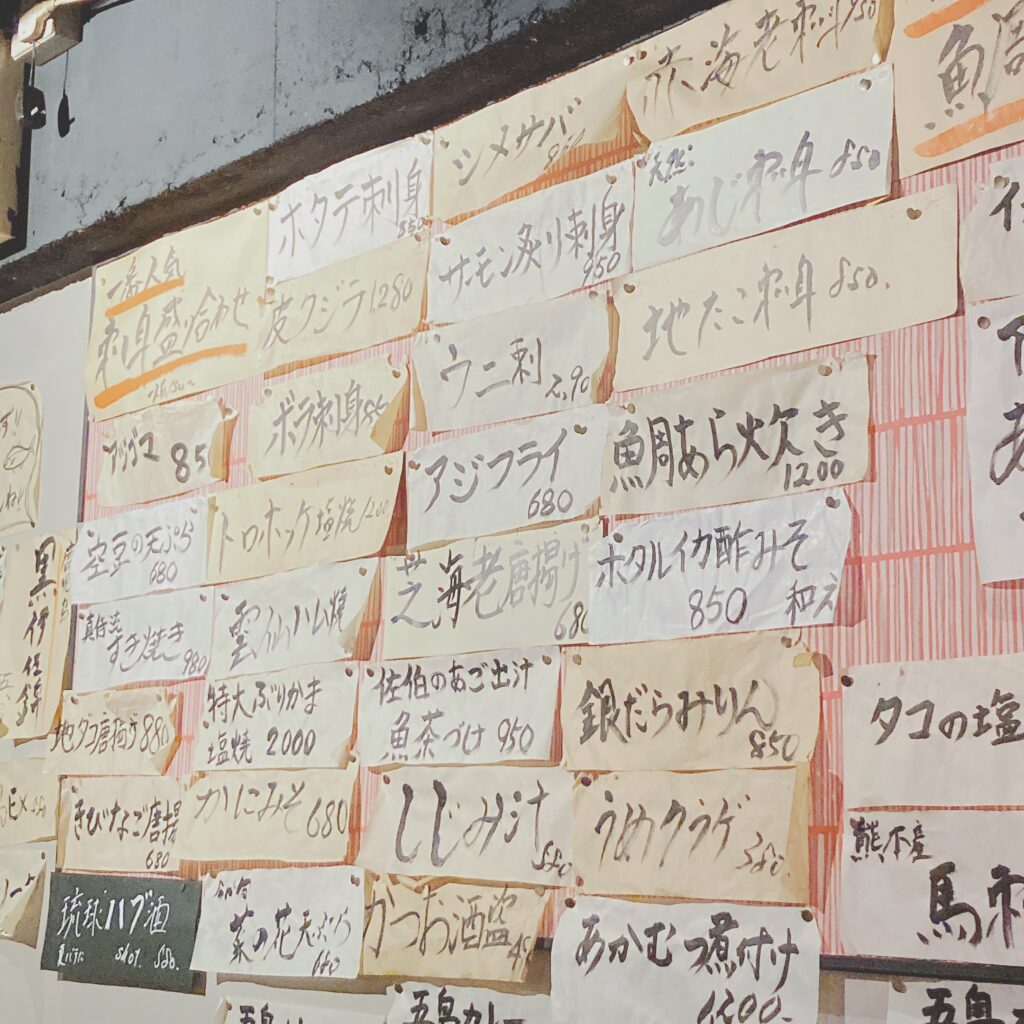 赤海老刺身 850
シメサバ
天然
あじ刺身 850
ホタテ刺身
サーモン炙り刺身
950
一番人気
刺身盛り合わせ
皮クジラ 1280
地たこ刺身 850.
ウニ刺
ボラ刺身
85
魚周あら炊き
1200
アジフライ
680
トロホッケ塩焼 1200
空豆の天ぷら
680
ホタルイカ酢みそ
850 和え
芝海老唐揚げ
680
雲仙ハム焼
すき焼き
980
特大ぶりかま
塩焼 2000
佐伯のあご出汁
魚茶づけ 950
銀だらみりん
850
地タコ唐揚げ 880
タコの塩
きびなご唐揚
680
かにみそ 680
しじみ汁
うめクラゲ
熊本産
馬刺
琉球ハブ酒
菜の花天ぷら
かつお酒盗
あかむつ煮付け
五島カレー